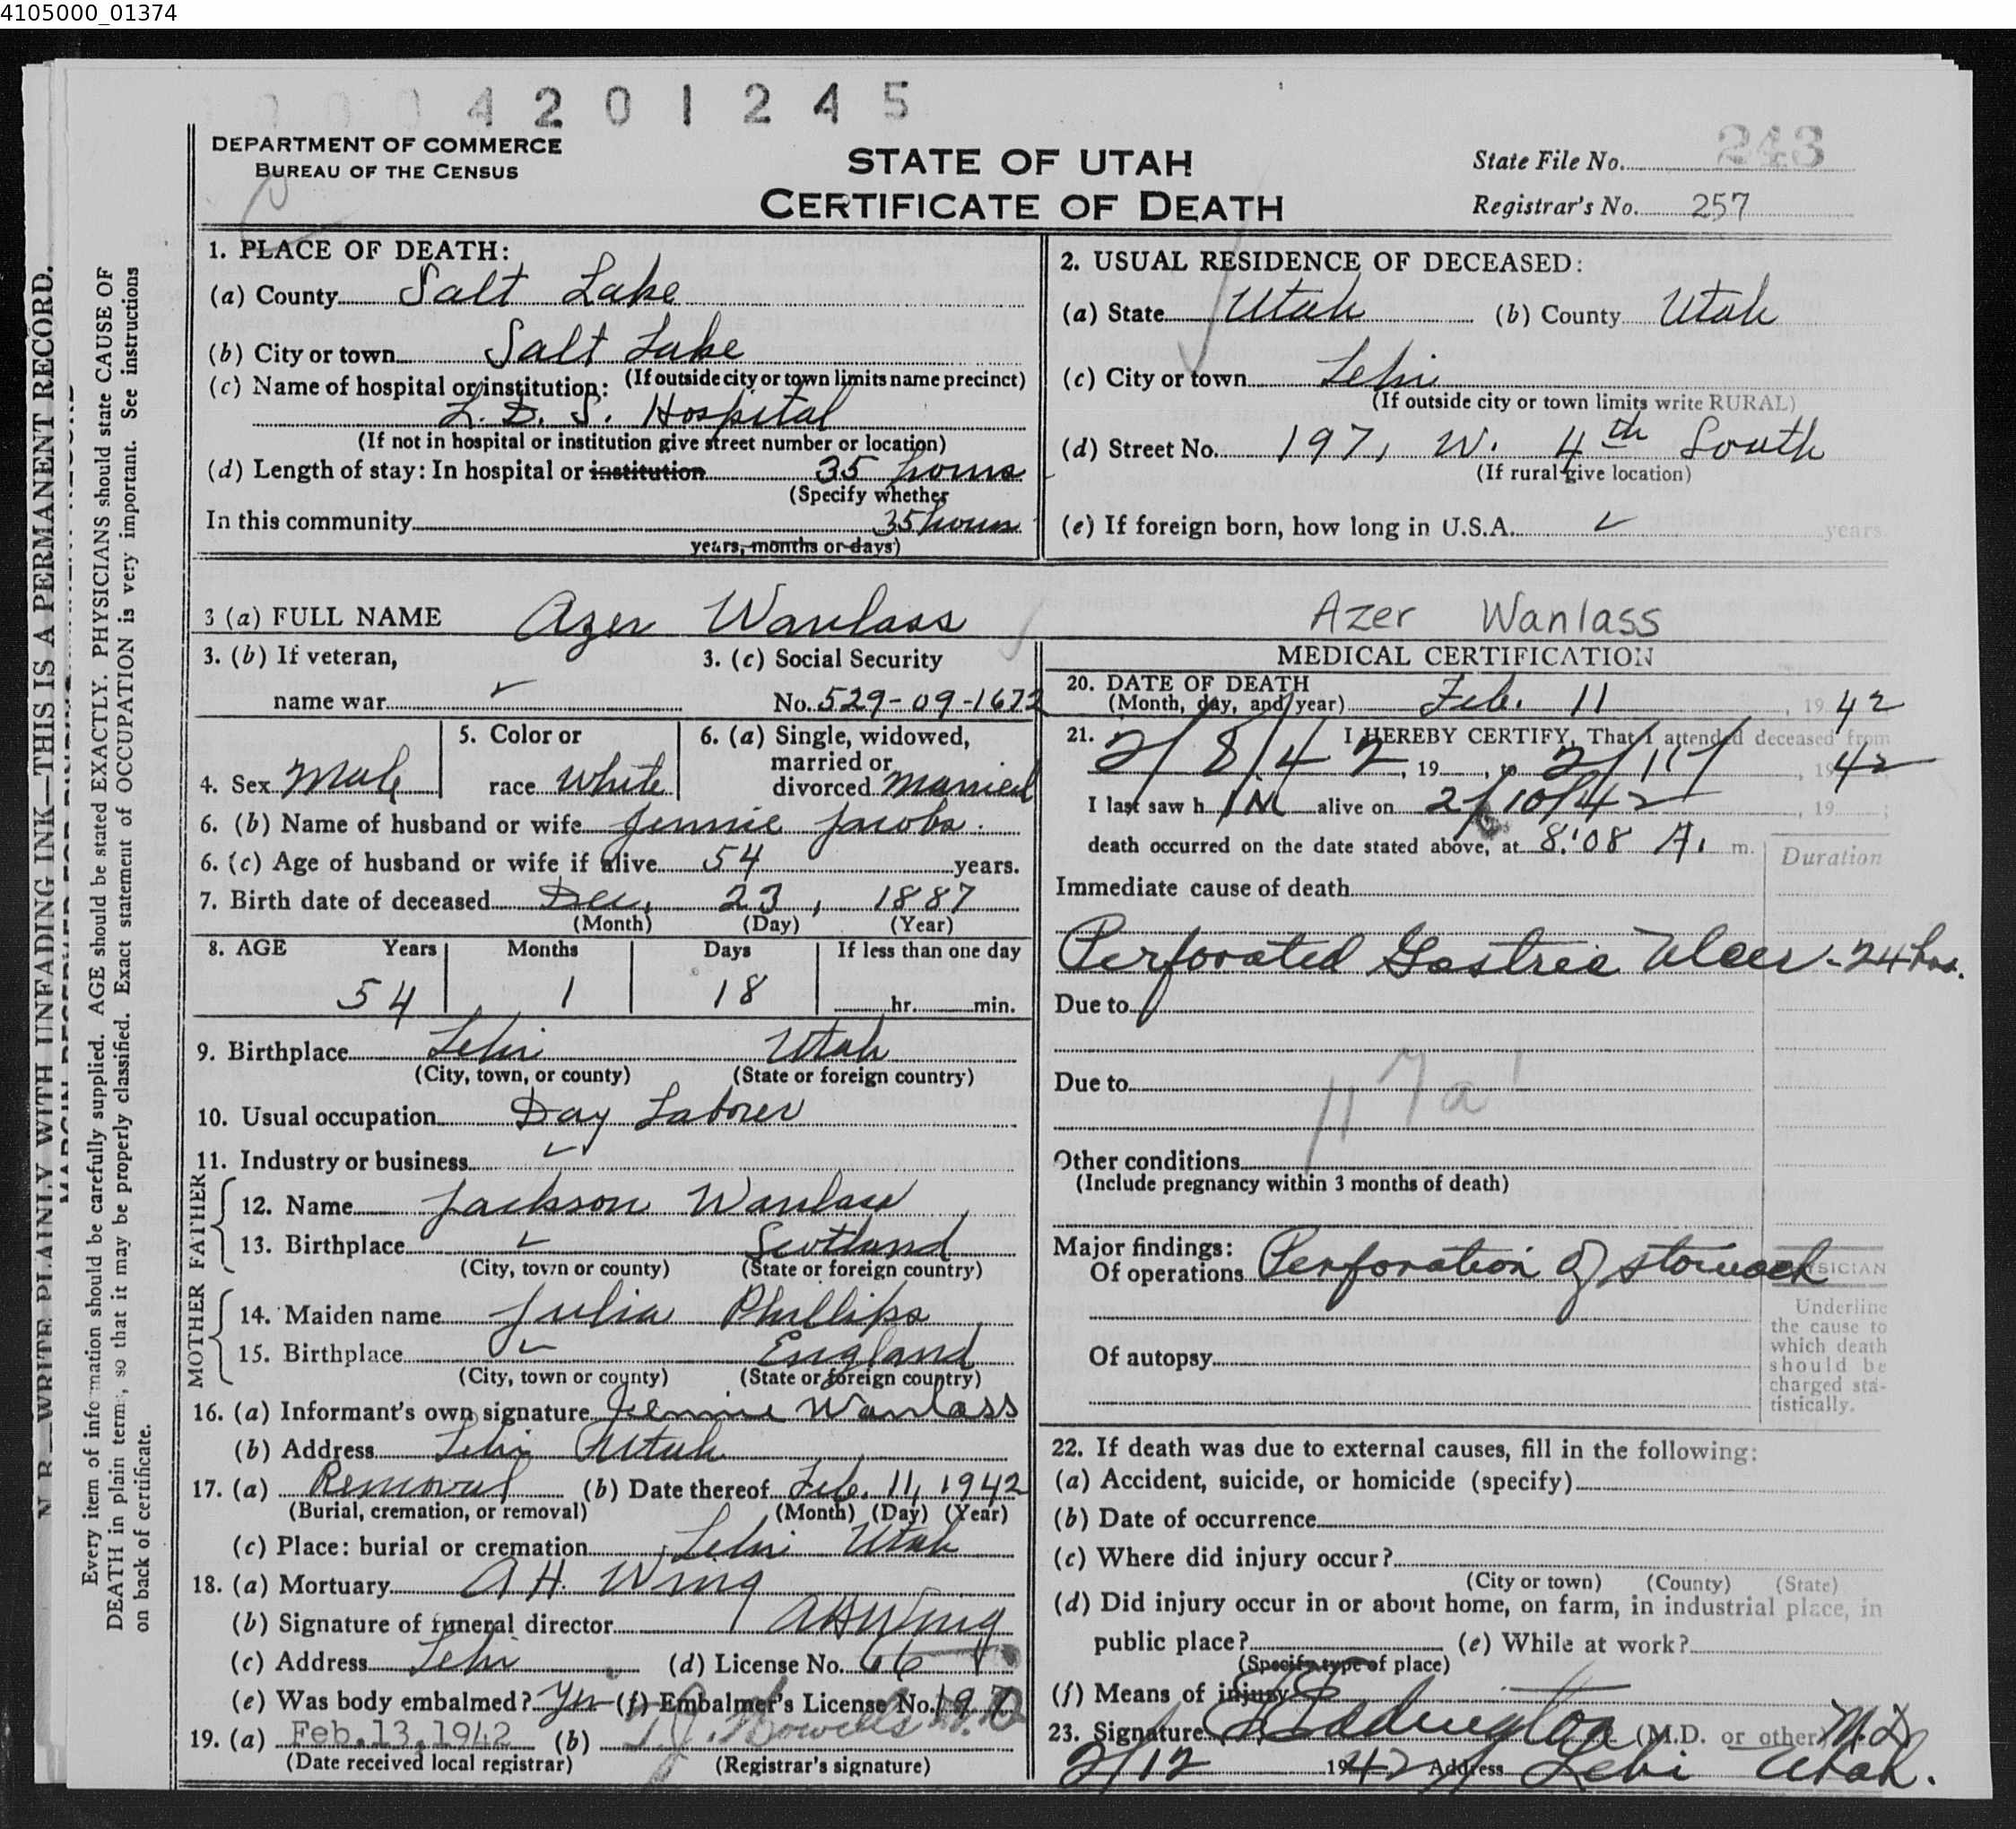 4105000_01374
4 2 0 1 2 4 5
DEPARTMENT OF COMMERCE
BUREAU OF THE CENSUS
STATE OF UTAH
CERTIFICATE OF DEATH
State File No. 243
Registrar's No. 257
N. B.—WRITE PLAINLY WITH UNFADING INK—THIS IS A PERMANENT RECORD.
Every item of information should be carefully supplied. AGE should be stated EXACTLY. PHYSICIANS should state CAUSE OF
DEATH in plain terms, so that it may be properly classified. Exact statement of OCCUPATION is very important. See instructions
on back of certificate.
1. PLACE OF DEATH:
(a) County Salt Lake
(b) City or town Salt Lake
(If outside city or town limits name precinct)
(c) Name of hospital or institution:
L. D. S. Hospital
(If not in hospital or institution give street number or location)
(d) Length of stay: In hospital or institution 35 hours
(Specify whether
In this community 35 hours
years, months or days)
2. USUAL RESIDENCE OF DECEASED:
(a) State Utah (b) County Utah
(c) City or town Lehi
(If outside city or town limits write RURAL)
(d) Street No. 197, W. 4th South
(If rural give location)
(e) If foreign born, how long in U.S.A. years
3 (a) FULL NAME Azer Wanlass Azer Wanlass
3. (b) If veteran,
name war
3. (c) Social Security
No. 529-09-1672
4. Sex Male
5. Color or
race White
6. (a) Single, widowed,
married or
divorced Married
6. (b) Name of husband or wife Jennie Jacobs
6. (c) Age of husband or wife if alive 54 years.
7. Birth date of deceased Dec. 23, 1887
(Month) (Day) (Year)
8. AGE Years Months Days If less than one day
54 1 18 hr. min.
9. Birthplace Lehi Utah
(City, town, or county) (State or foreign country)
10. Usual occupation Day Laborer
11. Industry or business
FATHER
12. Name Jackson Wanlass
13. Birthplace Scotland
(City, town or county) (State or foreign country)
MOTHER
14. Maiden name Julia Phillips
15. Birthplace England
(City, town or county) (State or foreign country)
16. (a) Informant's own signature Jennie Wanlass
(b) Address Lehi Utah
17. (a) Removal (b) Date thereof Feb. 11, 1942
(Burial, cremation, or removal) (Month) (Day) (Year)
(c) Place: burial or cremation Lehi Utah
18. (a) Mortuary A H. Wing
(b) Signature of funeral director A H Wing
(c) Address Lehi (d) License No. 66
(e) Was body embalmed? Yes (f) Embalmer's License No. 197
19. (a) Feb. 13, 1942 (b) T. J. Howells M.D.
(Date received local registrar) (Registrar's signature)
MEDICAL CERTIFICATION
20. DATE OF DEATH
(Month, day, and year) Feb. 11, 1942
21. I HEREBY CERTIFY, That I attended deceased from
2/8/42, 19 , to 2/11/, 1942
I last saw h IM alive on 2/10/42, 19 ;
death occurred on the date stated above, at 8:08 A. m.
Duration
Immediate cause of death
Perforated Gastric Ulcer - 24 hrs.
Due to
Due to
117a
Other conditions
(Include pregnancy within 3 months of death)
Major findings:
Of operations Perforation of stomach
Of autopsy
PHYSICIAN
Underline
the cause to
which death
should be
charged sta-
tistically.
22. If death was due to external causes, fill in the following:
(a) Accident, suicide, or homicide (specify)
(b) Date of occurrence
(c) Where did injury occur?
(City or town) (County) (State)
(d) Did injury occur in or about home, on farm, in industrial place, in
public place? (e) While at work?
(Specify type of place)
(f) Means of injury
23. Signature Eddington (M.D. or other) M.D.
2/12 1942 Address Lehi Utah.